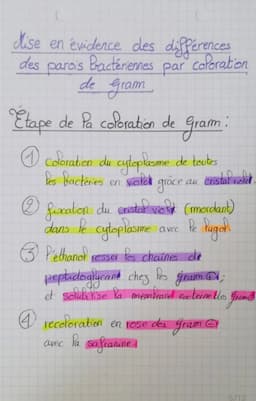 Mise en évidence des différences
des parois Bactériennes par coloration
de Gram
Étape de la coloration de Gram :
① Coloration du cytoplasme de toutes
les bactéries en violet grâce au cristal violet.
② fixation du cristal violet (mordant)
dans le cytoplasme avec le lugol
③ l'éthanol resser les chaînes de
peptidoglycane chez les Gram ⊕;
et solubilise la membrane externe des Gram⊖
④ recoloration en rose des Gram ⊖
avec la safranine.